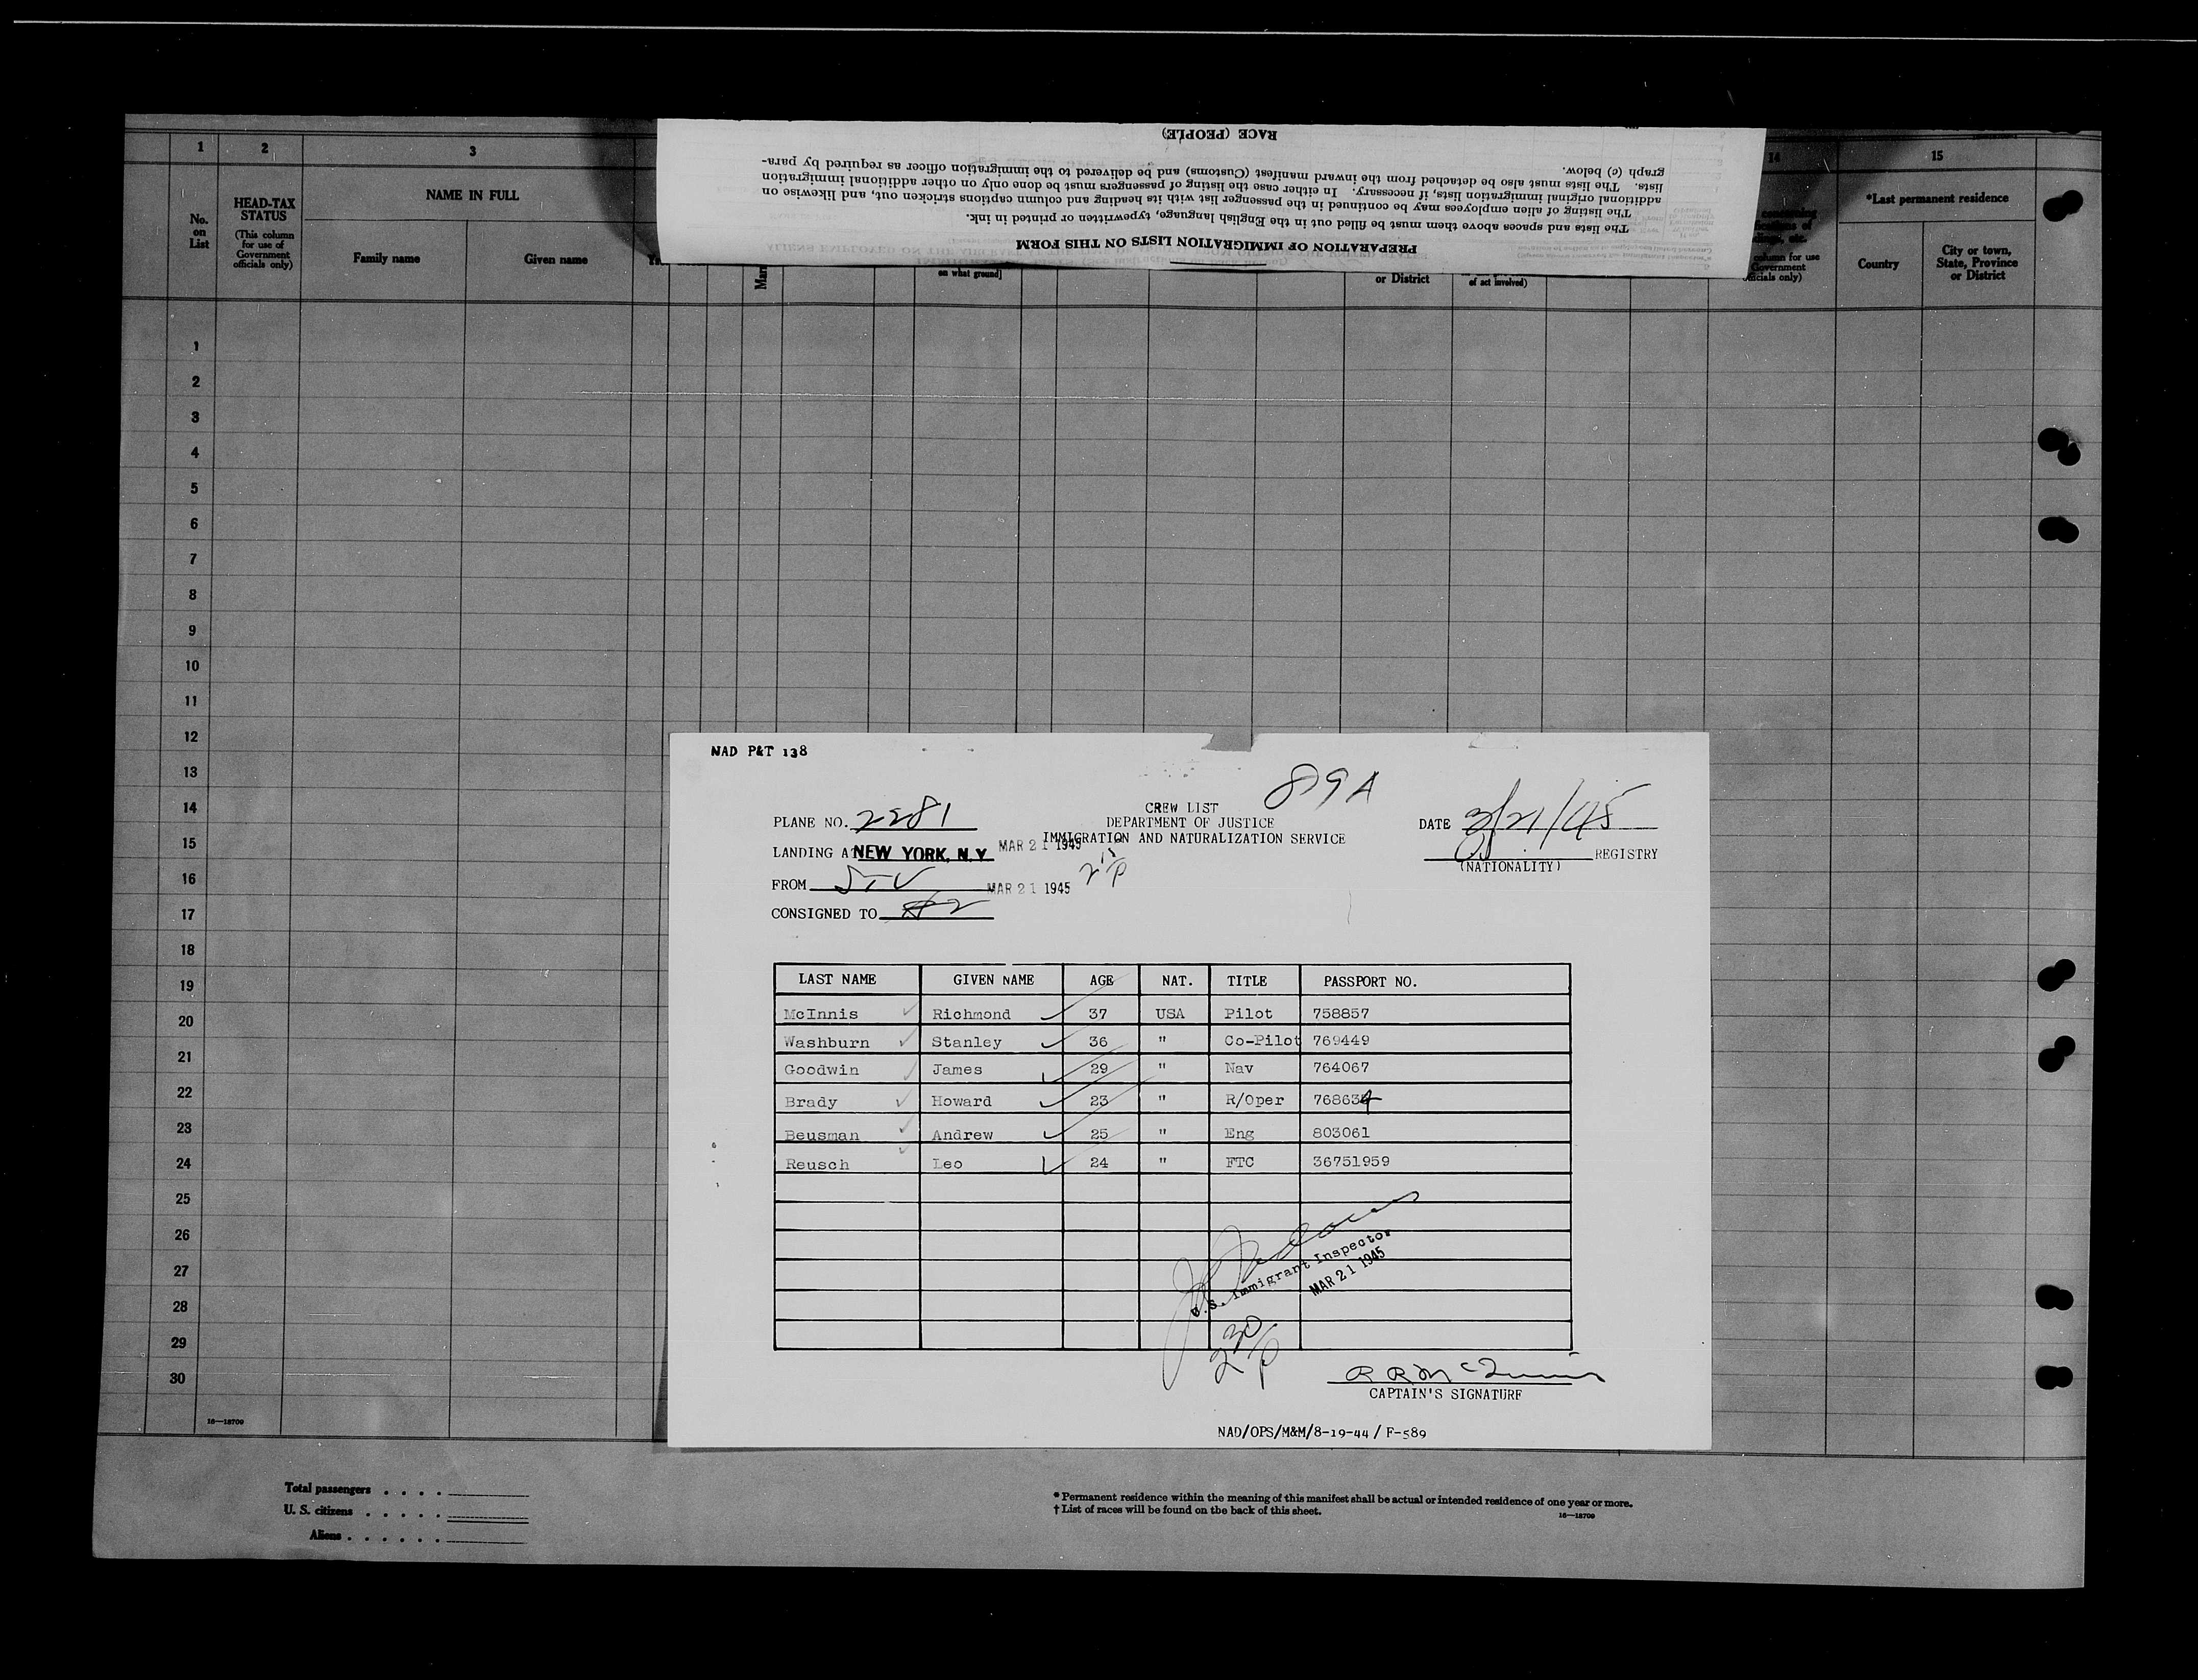 1 2 3 14 15
No. on List
HEAD-TAX STATUS
(This column for use of Government officials only)
NAME IN FULL
Family name Given name
RACE (PEOPLE)
graph (c) below.
lists. The lists must also be detached from the inward manifest (Customs) and be delivered to the immigration officer as required by para-
additional original immigration lists, if necessary. In either case the listing of passengers must be done only on other additional immigration
The listing of alien employees may be continued in the passenger list with its heading and column captions stricken out, and likewise on
The lists and spaces above them must be filled out in the English language, typewritten or printed in ink.
PREPARATION OF IMMIGRATION LISTS ON THIS FORM
on what ground]
or District
of act involved)
column for use
Government
officials only)
*Last permanent residence
Country
City or town, State, Province or District
1
2
3
4
5
6
7
8
9
10
11
12
13
14
15
16
17
18
19
20
21
22
23
24
25
26
27
28
29
30
16—18709
NAD P&T 138
89A
CREW LIST
DEPARTMENT OF JUSTICE
IMMIGRATION AND NATURALIZATION SERVICE
PLANE NO. 2281
DATE 3/21/45
LANDING AT NEW YORK, N.Y. MAR 21 1945
REGISTRY
(NATIONALITY)
FROM MAR 21 1945
CONSIGNED TO
LAST NAME GIVEN NAME AGE NAT. TITLE PASSPORT NO.
McInnis Richmond 37 USA Pilot 758857
Washburn Stanley 36 " Co-Pilot 769449
Goodwin James 29 " Nav 764067
Brady Howard 23 " R/Oper 768634
Beusman Andrew 25 " Eng 803061
Reusch Leo 24 " FTC 36751959
U.S. Immigrant Inspector
MAR 21 1945
2 30 P
R R McInnis
CAPTAIN'S SIGNATURE
NAD/OPS/M&M/8-19-44 / F-589
Total passengers . . . .
U. S. citizens . . . . .
Aliens . . . . . .
* Permanent residence within the meaning of this manifest shall be actual or intended residence of one year or more.
† List of races will be found on the back of this sheet.
16—18709